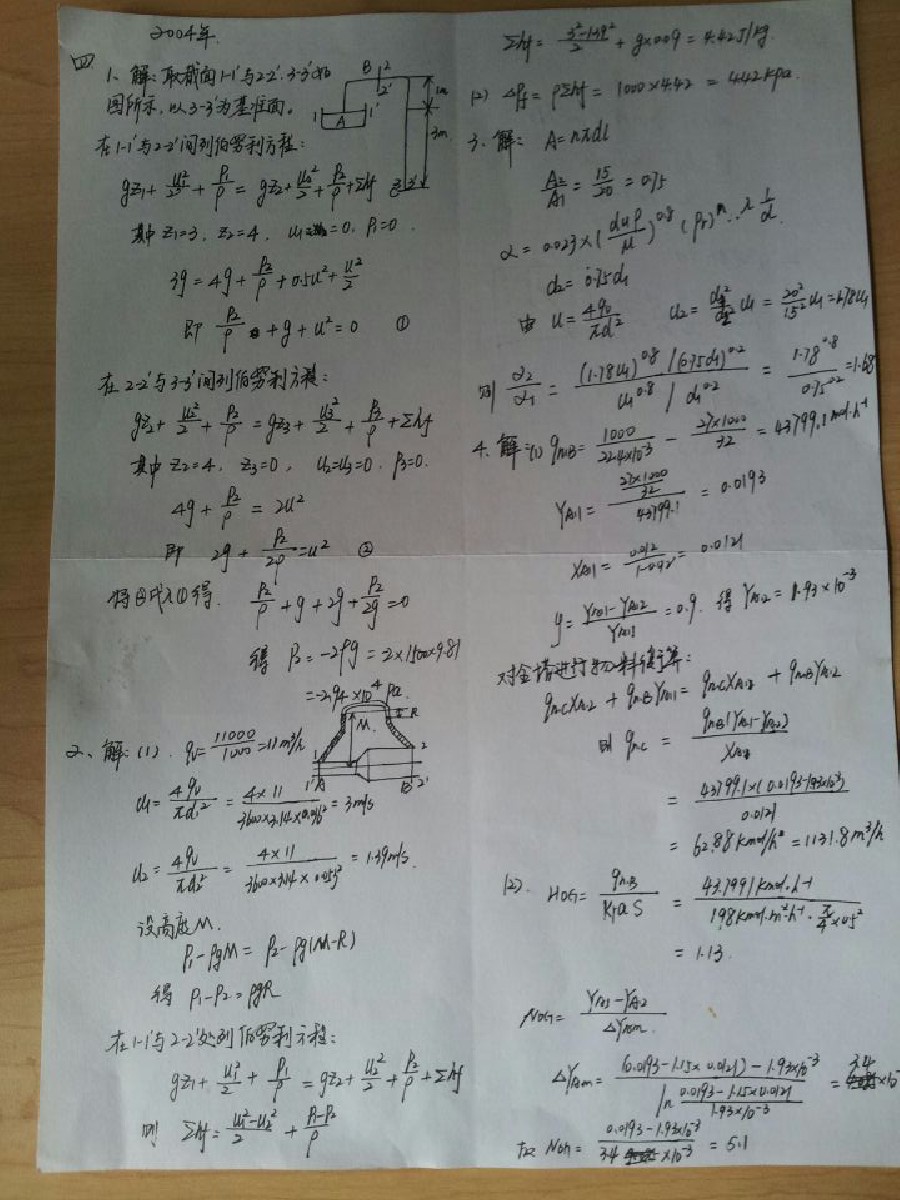 2004年.
四
1、解:取截面1-1'与2-2'、3-3'如
图所示,以3-3'为基准面。
B 2
2'
1 A 1'
1m
3m
3 3'
在1-1'与2-2'间列伯努利方程:
gz₁ + u₁²/2 + P₁/ρ = gz₂ + u₂²/2 + P₂/ρ + Σhf
其中 z₁=3, z₂=4, P₁=0.
3g = 4g + P₂/ρ + 0.5u² + u²/2
即 P₂/ρ + g + u² = 0 ①
在2-2'与3-3'间列伯努利方程:
gz₂ + u₂²/2 + P₂/ρ = gz₃ + u₃²/2 + P₃/ρ + Σhf
其中 z₂=4, z₃=0, u₂=u₃=0, P₃=0.
4g + P₂/ρ = 2u²
即 2g + P₂/2ρ = u² ②
将②代入①得. P₂/ρ + g + 2g + P₂/2g = 0
得 P₂ = -2ρg = 2×1500×9.81
= -2.94×10⁴ Pa.
2、解:(1).
M R
1 2
1' A 2'
u₁ = 4qv/πd₁² = 3m/s
u₂ = 4qv/πd₂² = 4×11 = 1.39m/s.
设高度M.
P₁-ρgM = P₂-ρg(M-R)
得 P₁-P₂ = ρgR
在1-1'与2-2'处列伯努利方程:
gz₁ + u₁²/2 + P₁/ρ = gz₂ + u₂²/2 + P₂/ρ + Σhf
则 Σhf = (u₁²-u₂²)/2 + (P₁-P₂)/ρ
Σhf = (3²-1.39²)/2 + g×0.09 = 4.42J/kg.
(2) ΔPf = ρΣhf = 1000×4.42 = 4.42kPa.
3、解: A=nπdl
A₂/A₁ = 15/20 = 0.75
α = 0.023×(duρ/μ)^0.8 (Pr)^n
d₂ = 0.75d₁
由 u = 4qv/πd² = 20²/15² u₁ = 1.78u₁
则 α₂/α₁ = (1.78u₁)^0.8/(0.75d₁)^0.2 / u₁^0.8/d₁^0.2 = 1.78^0.8/0.75^0.2 = 1.68
4、解:(1) qnB = 1000/22.4×10⁻³ - 27×1000/32 = 43799.1mol·h⁻¹
YA1 = (27×1000/32)/43799.1 = 0.0193
XA1 = 0.0121
= 0.9. 得 YA2 = 1.93×10⁻³
对全塔进行物料衡算:
qnC XA2 + qnB YA1 = qnC XA2 + qnB YA2
则 qnC = qnB(YA1-YA2)/
= 43799.1×(0.0193-1.93×10⁻³)/0.0121
= 62.88kmol/h = 1131.8m³/h
(2). HOG = qnB/KYaS = 43.7991kmol·h⁻¹/198kmol·m⁻³·h⁻¹·π/4×0.5²
= 1.13.
NOG = (YA1-YA2)/ΔYAm.
ΔYAm = (0.0193-1.15×0.0121)-1.93×10⁻³ / ln (0.0193-1.15×0.0121)/1.93×10⁻³ = 3.4
故 NOG = (0.0193-1.93×10⁻³)/3.4×10⁻³ = 5.1